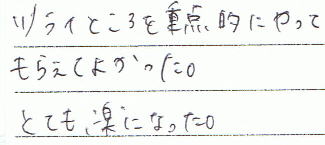 ツライところを重点的にやって
もらえてよかった。
とても、楽になった。